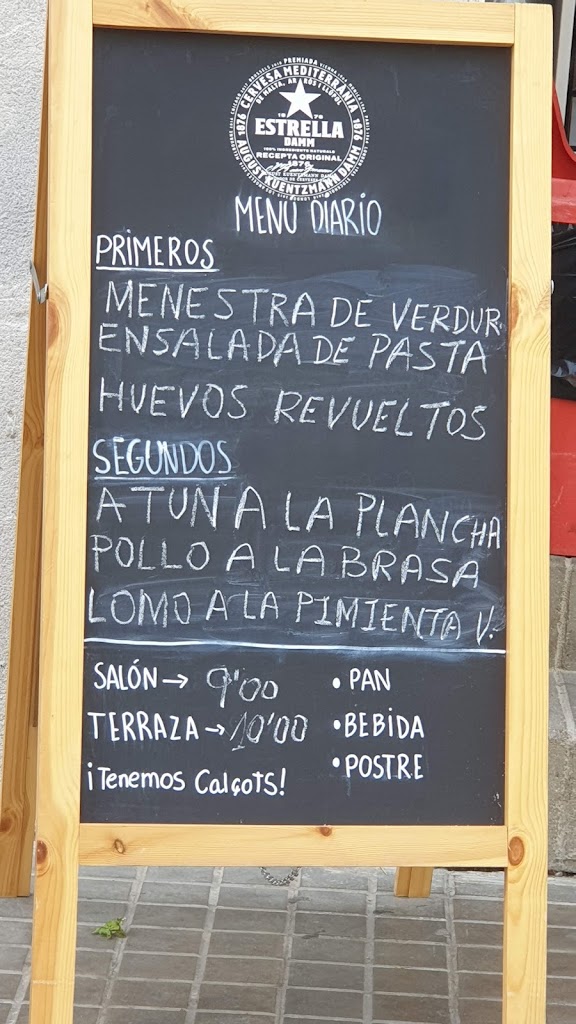 PREMIADA
CERVESA MEDITERRÀNIA
DE MALTA, ARRÒS I LLÚPOL
1876
1876
ESTRELLA
DAMM
100% INGREDIENTS NATURALS
RECEPTA ORIGINAL
1876
AUGUST KUENTZMANN DAMM
MENÚ DIARIO
PRIMEROS
MENESTRA DE VERDUR.
ENSALADA DE PASTA
HUEVOS REVUELTOS
SEGUNDOS
ATUN A LA PLANCHA
POLLO A LA BRASA
LOMO A LA PIMIENTA V.
SALÓN → 9'00
TERRAZA → 10'00
¡Tenemos Calçots!
• PAN
• BEBIDA
• POSTRE